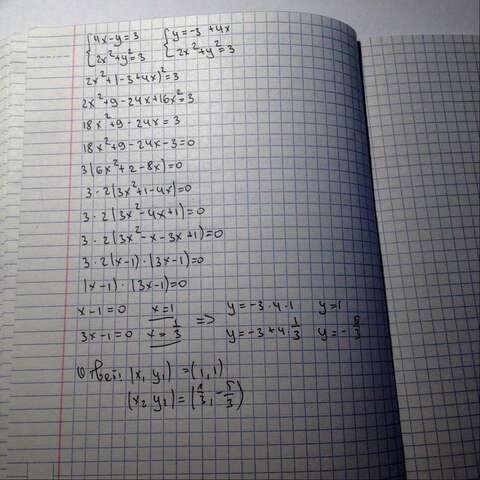 {4x-y=3 {y=-3+4x
{2x²+y²=3 {2x²+y²=3
2x²+(-3+4x)²=3
2x²+9-24x+16x²=3
18x²+9-24x=3
18x²+9-24x-3=0
3(6x²+2-8x)=0
3·2(3x²+1-4x)=0
3·2(3x²-4x+1)=0
3·2(3x²-x-3x+1)=0
3·2(x-1)·(3x-1)=0
(x-1)·(3x-1)=0
x-1=0 x=1 => y=-3·4·1 y=1
3x-1=0 x=1/3 y=-3+4·1/3 y=-5/3
Ответ: (x, y₁)=(1,1)
(x₂ y₂)=(1/3,-5/3)